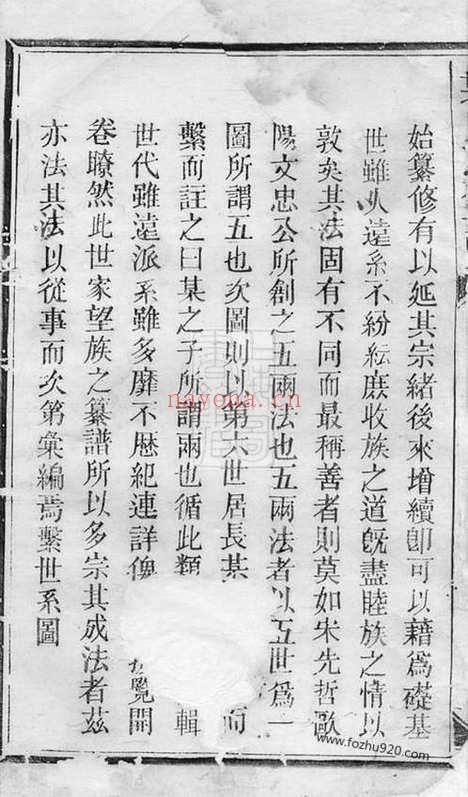 始纂修有以延其宗緒後來增續卽可以藉爲礎基
世雖久遠系不紛紜庶收族之道既盡睦族之情以
敦矣其法固有不同而最稱善者則莫如宋先哲歐
陽文忠公所創之五兩法也五兩法者以五世爲一
圖所謂五也次圖則以第六世居長某而
繫而註之曰某之子所謂兩也循此類輯
世代雖遠派系雖多靡不歷紀連詳俾覽開
卷瞭然此世家望族之纂譜所以多宗其成法者茲
亦法其法以從事而次第彙編焉繫世系圖
nayona.cn
www.fozhu920.com